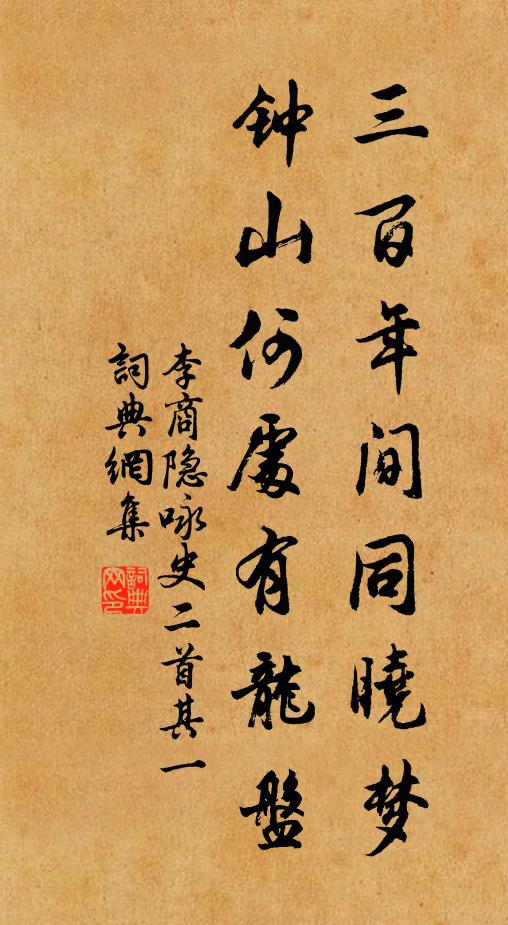 三百年间同曉梦
钟山何處有龍盤
李商隐咏史二首其一
詞典網集
詞典网印